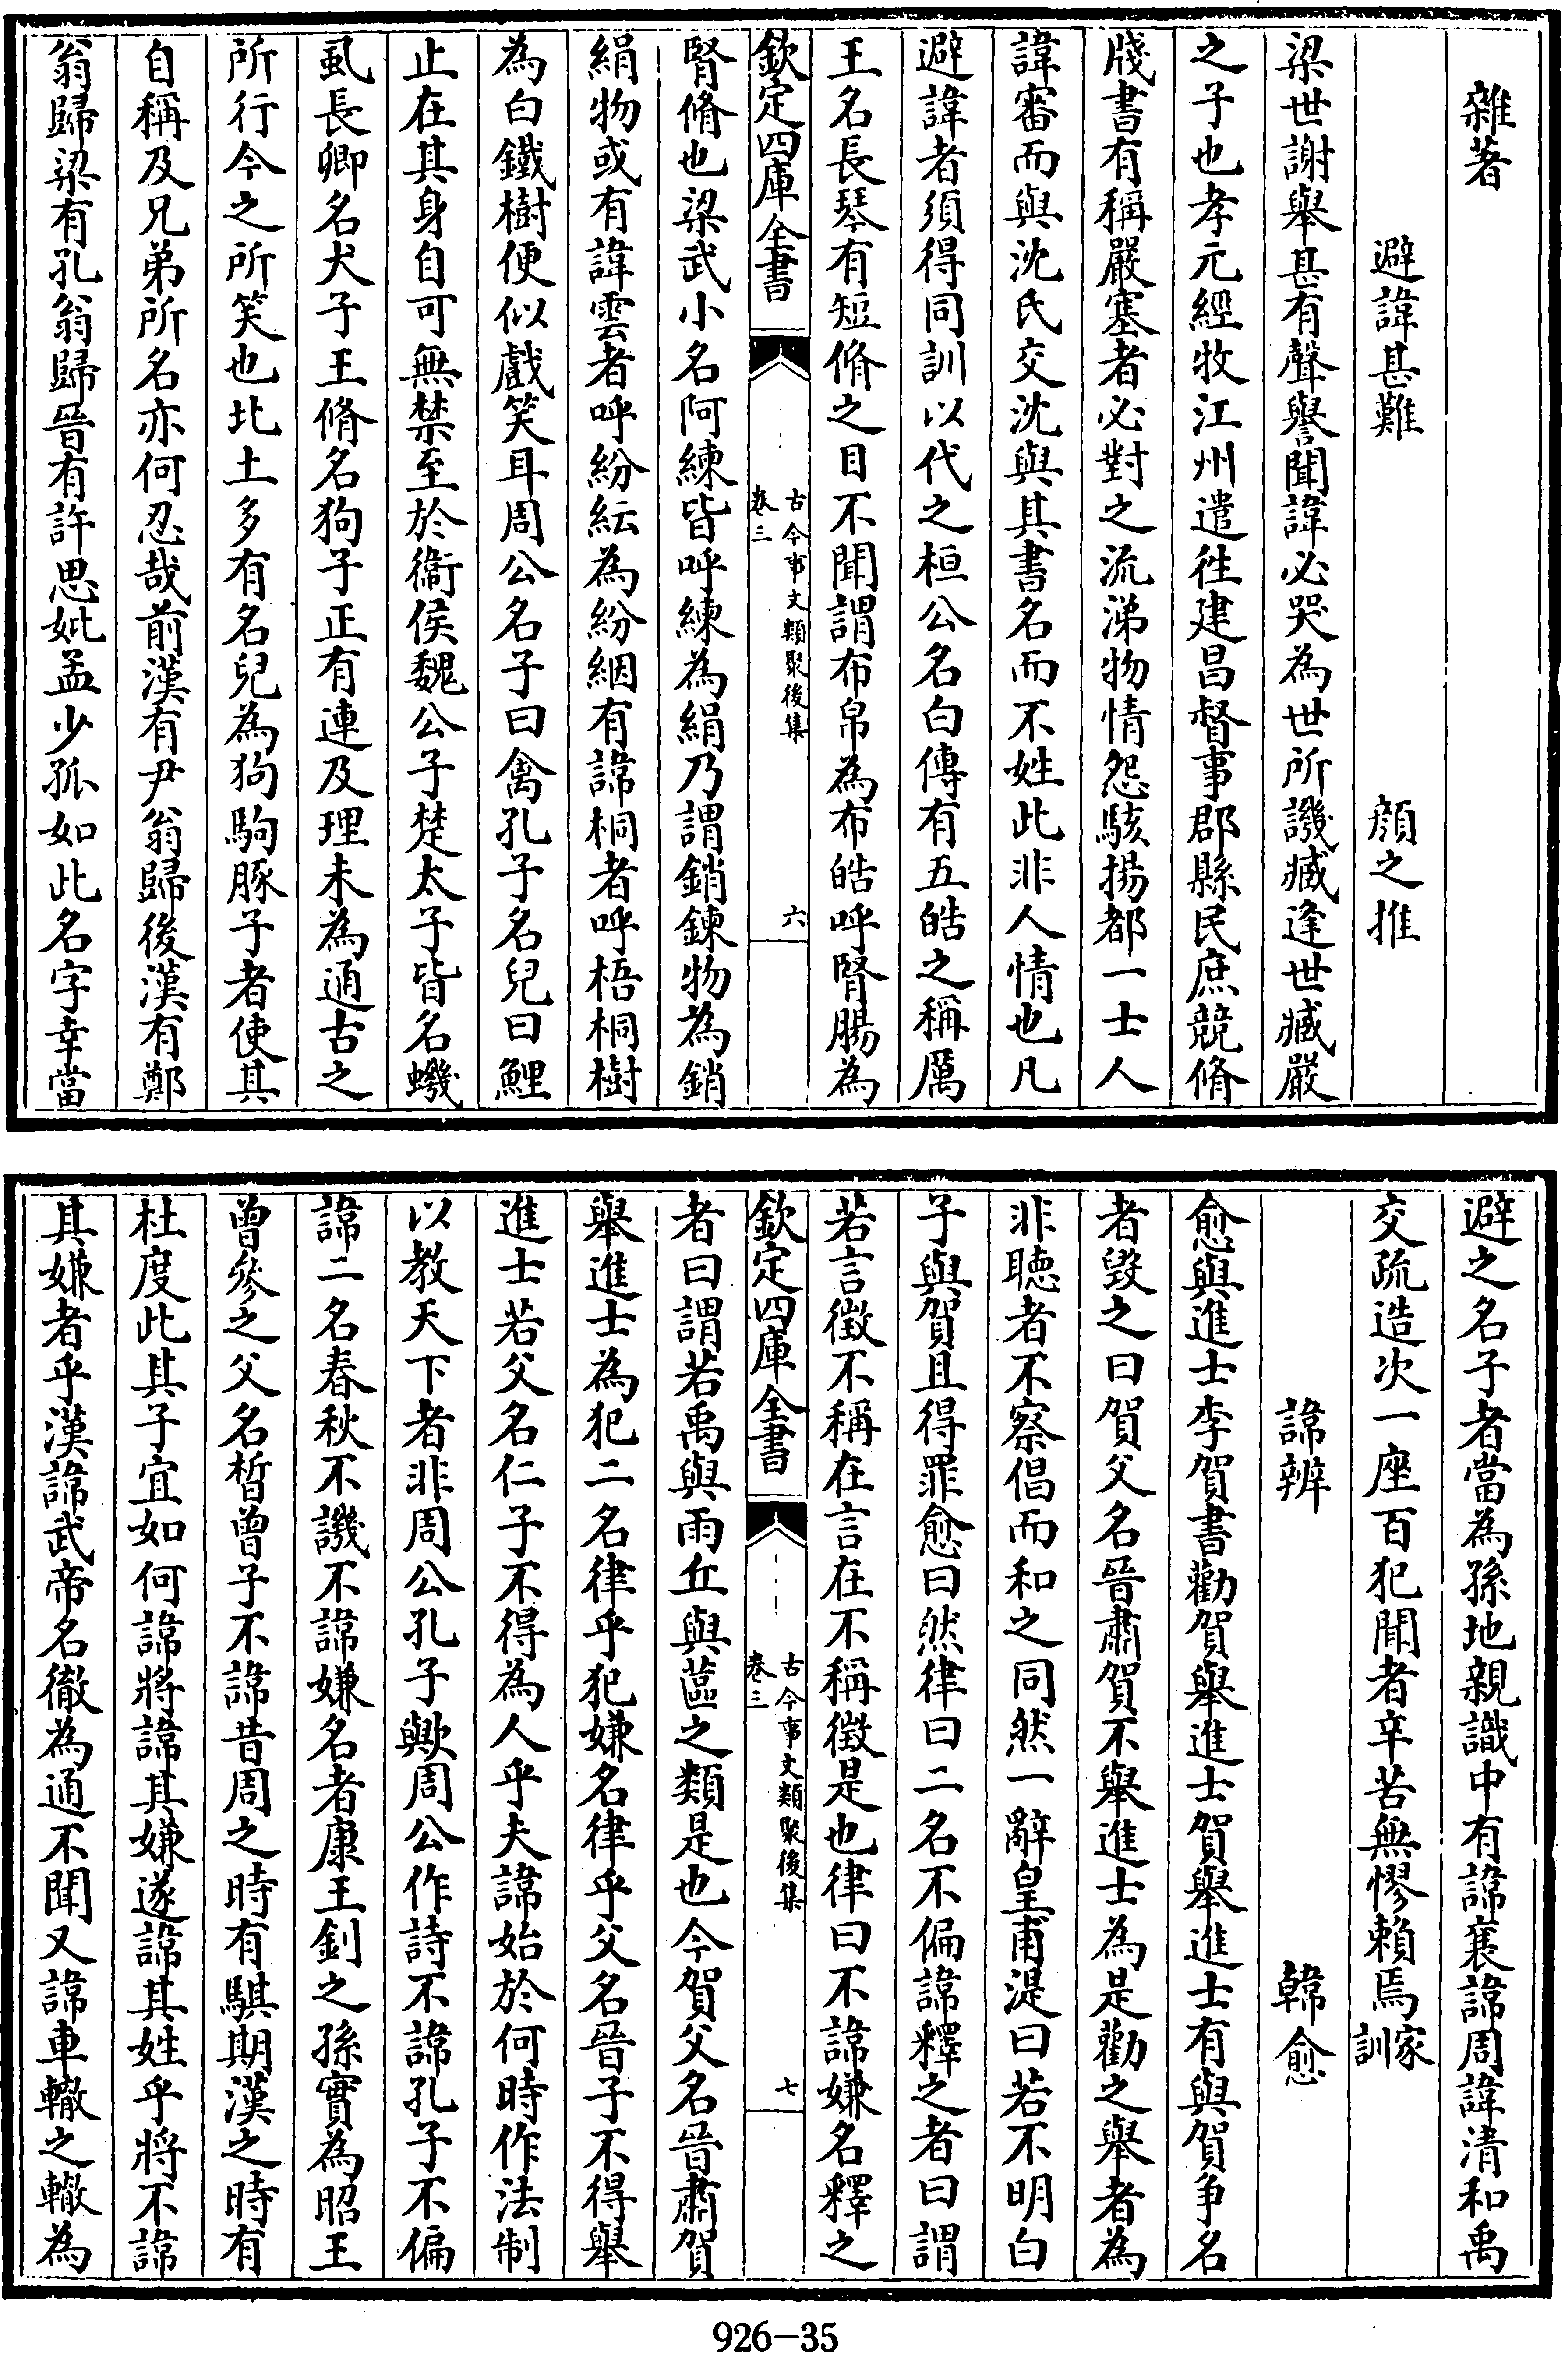 雜著
避諱甚難　顔之推
梁世謝舉甚有聲譽聞諱必哭為世所譏臧逢世臧嚴
之子也孝元經牧江州遣徃建昌督事郡縣民庶競脩
牋書有稱嚴塞者必對之流涕物情怨駭揚都一士人
諱審而與沈氏交沈與其書名而不姓此非人情也凡
避諱者須得同訓以代之桓公名白傳有五皓之稱厲
王名長琴有短脩之目不聞謂布帛為布皓呼腎腸為
欽定四庫全書
古今事文類聚後集
卷三
六
腎脩也梁武小名阿練皆呼練為絹乃謂銷鍊物為銷
絹物或有諱雲者呼紛紜為紛絪有諱桐者呼梧桐樹
為白鐵樹便似戲笑耳周公名子曰禽孔子名兒曰鯉
止在其身自可無禁至於衞侯魏公子楚太子皆名蟣
虱長卿名犬子王脩名狗子正有連及理未為通古之
所行今之所笑也北土多有名兒為狗駒豚子者使其
自稱及兄弟所名亦何忍哉前漢有尹翁歸後漢有鄭
翁歸梁有孔翁歸晉有許思妣孟少孤如此名字幸當
避之名子者當為孫地親識中有諱襄諱周諱清和禹
交疏造次一座百犯聞者辛苦無憀賴焉家訓
諱辨　韓愈
愈與進士李賀書勸賀舉進士賀舉進士有與賀争名
者毀之曰賀父名晉肅賀不舉進士為是勸之舉者為
非聽者不察倡而和之同然一辭皇甫湜曰若不明白
子與賀且得罪愈曰然律曰二名不偏諱釋之者曰謂
若言徴不稱在言在不稱徴是也律曰不諱嫌名釋之
欽定四庫全書
古今事文類聚後集
卷三
七
者曰謂若禹與雨丘與蓲之類是也今賀父名晉肅賀
舉進士為犯二名律乎犯嫌名律乎父名晉子不得舉
進士若父名仁子不得為人乎夫諱始於何時作法制
以教天下者非周公孔子歟周公作詩不諱孔子不偏
諱二名春秋不譏不諱嫌名者康王釗之孫實為昭王
曾參之父名晳曾子不諱昔周之時有騏期漢之時有
杜度此其子宜如何諱將諱其嫌遂諱其姓乎將不諱
其嫌者乎漢諱武帝名徹為通不聞又諱車轍之轍為
926—35